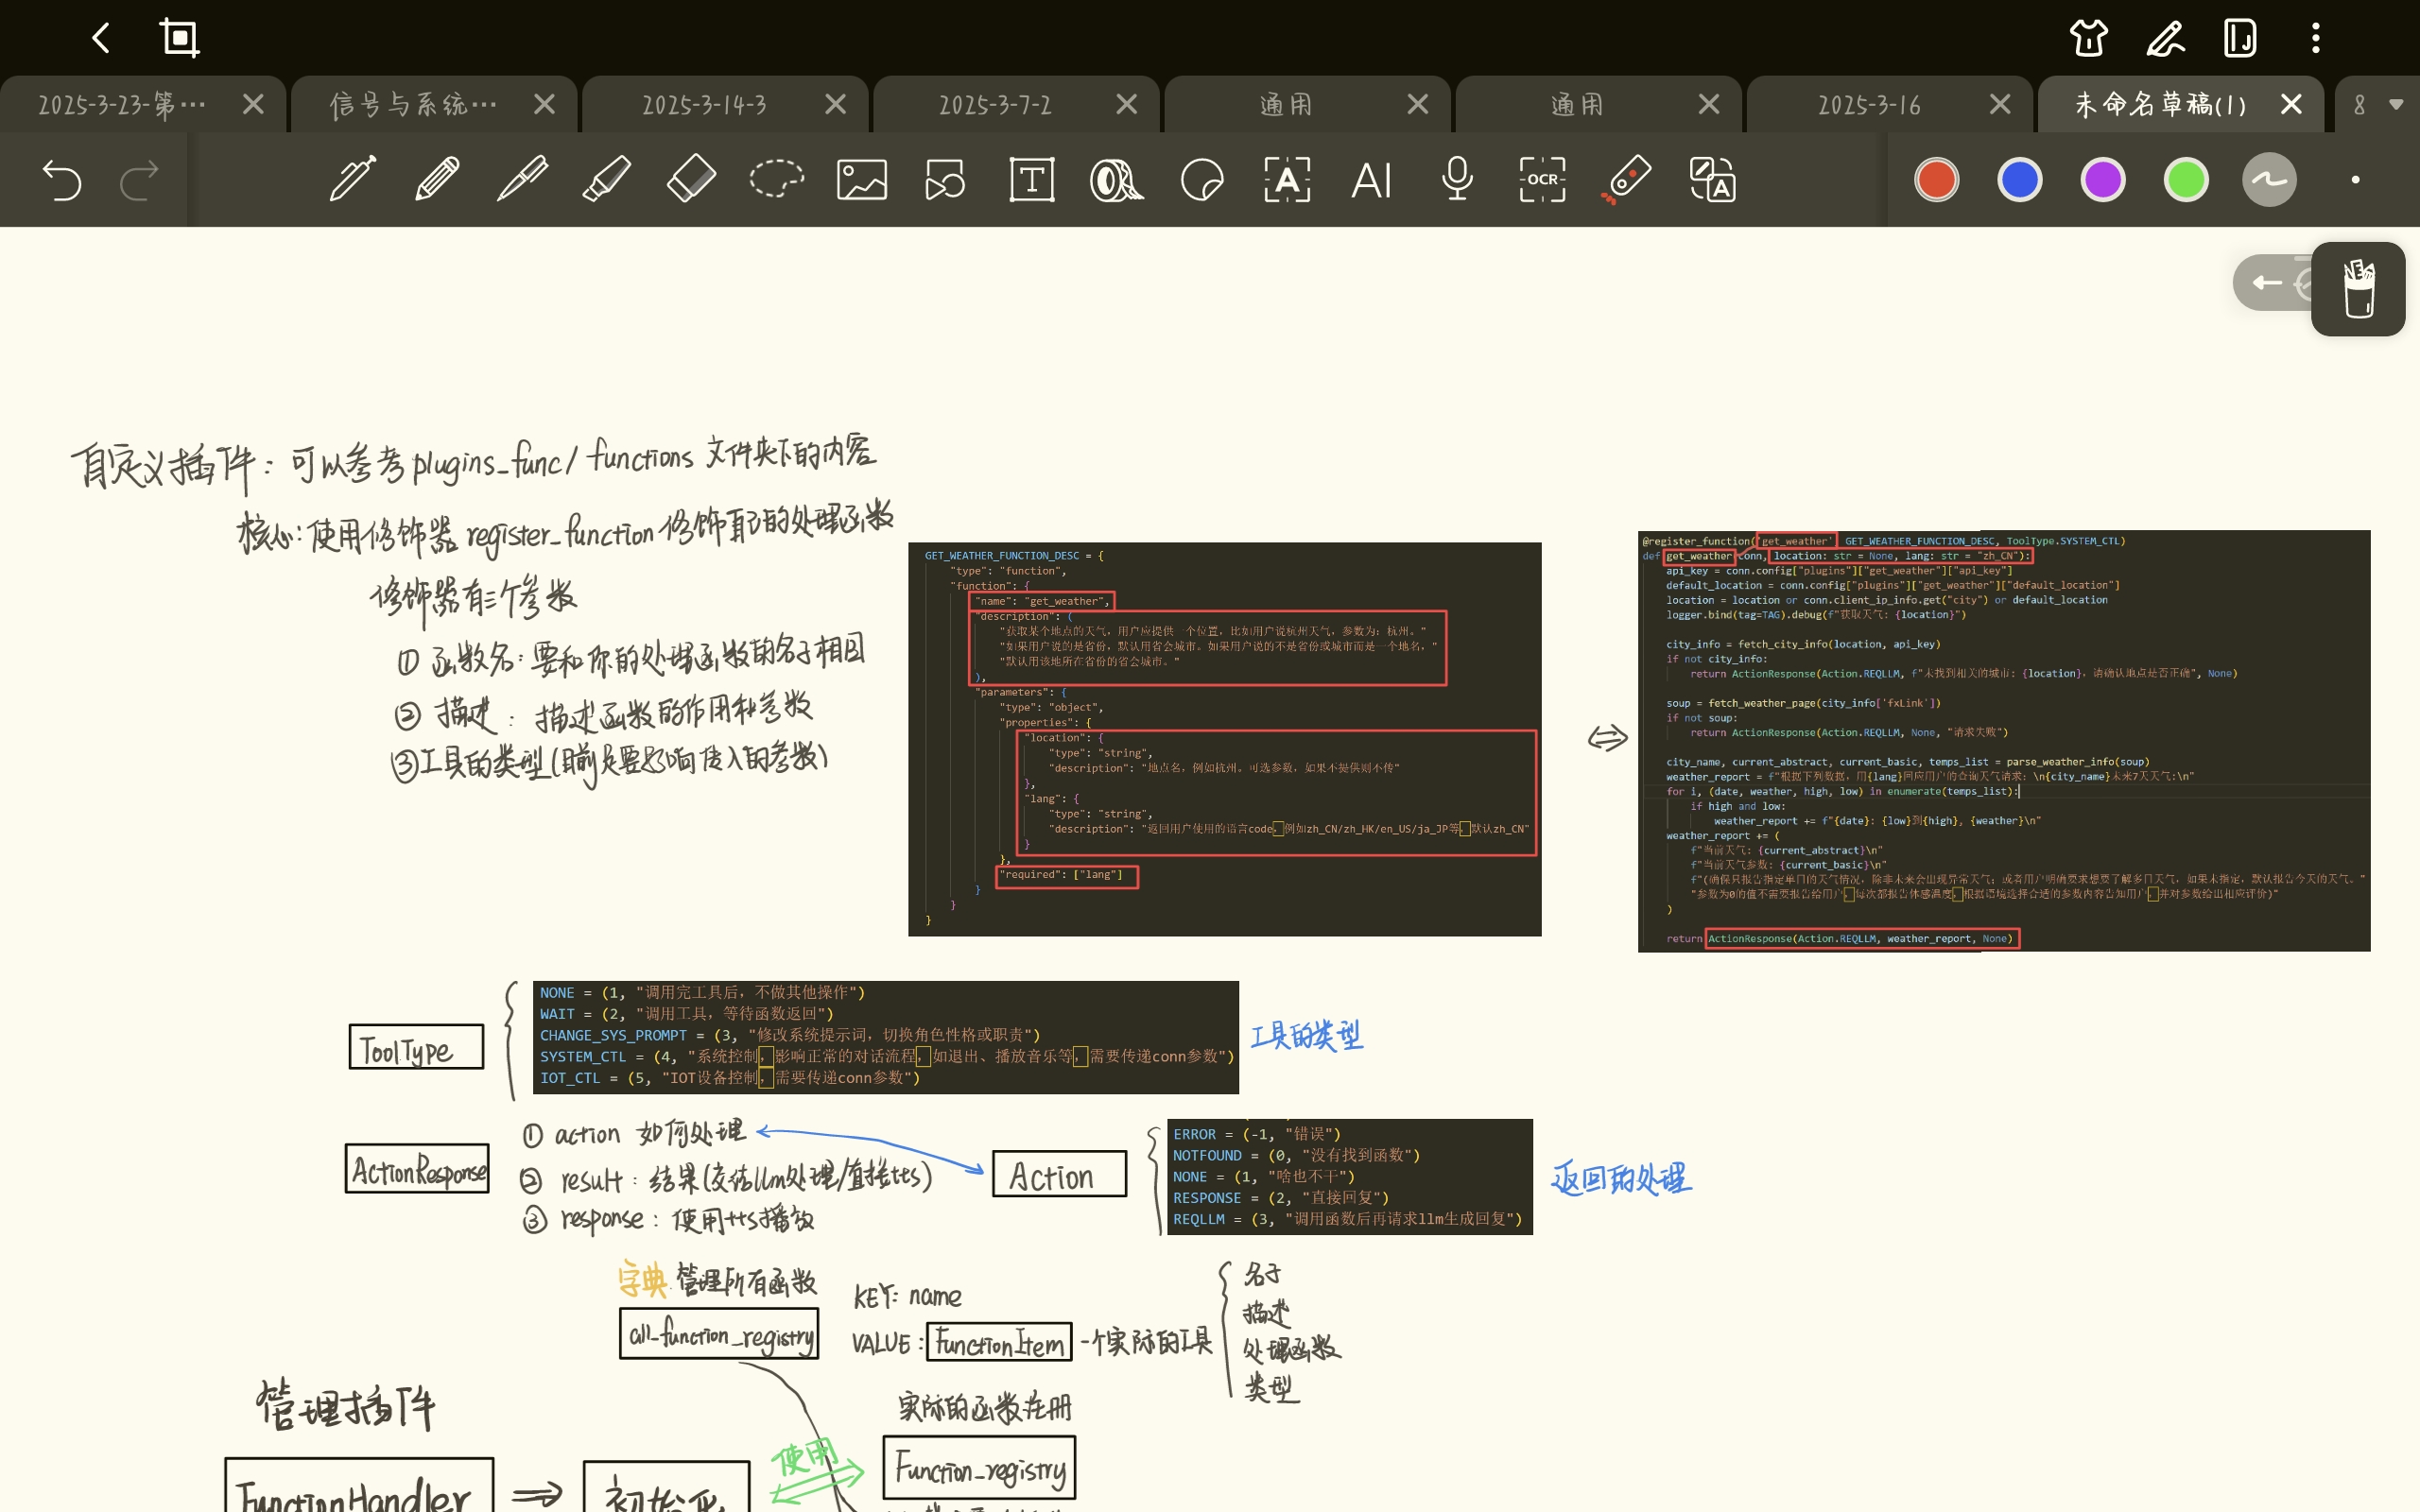 2025-3-23-第…
信号与系统…
2025-3-14-3
2025-3-7-2
通用
通用
2025-3-16
未命名草稿(1)
8
T
A
AI
OCR
A
自定义插件：可以参考 plugins_func/functions 文件夹下的内容
核心：使用修饰器 register_function 修饰自己的处理函数
修饰器有三个参数
① 函数名：要和你的处理函数的名字相同
② 描述：描述函数的作用和参数
③ 工具的类型(目前主要影响传入的参数)
GET_WEATHER_FUNCTION_DESC = {
"type": "function",
"function": {
"name": "get_weather",
"description": (
"获取某个地点的天气，用户应提供一个位置，比如用户说杭州天气，参数为：杭州。"
"如果用户说的是省份，默认用省会城市。如果用户说的不是省份或城市而是一个地名，"
"默认用该地所在省份的省会城市。"
),
"parameters": {
"type": "object",
"properties": {
"location": {
"type": "string",
"description": "地点名，例如杭州。可选参数，如果不提供则不传"
},
"lang": {
"type": "string",
"description": "返回用户使用的语言code，例如zh_CN/zh_HK/en_US/ja_JP等，默认zh_CN"
}
},
"required": ["lang"]
}
}
}
⇔
@register_function('get_weather' GET_WEATHER_FUNCTION_DESC, ToolType.SYSTEM_CTL)
def get_weather conn, location: str = None, lang: str = "zh_CN"):
api_key = conn.config["plugins"]["get_weather"]["api_key"]
default_location = conn.config["plugins"]["get_weather"]["default_location"]
location = location or conn.client_ip_info.get("city") or default_location
logger.bind(tag=TAG).debug(f"获取天气: {location}")
city_info = fetch_city_info(location, api_key)
if not city_info:
return ActionResponse(Action.REQLLM, f"未找到相关的城市: {location}，请确认地点是否正确", None)
soup = fetch_weather_page(city_info['fxLink'])
if not soup:
return ActionResponse(Action.REQLLM, None, "请求失败")
city_name, current_abstract, current_basic, temps_list = parse_weather_info(soup)
weather_report = f"根据下列数据，用{lang}回应用户的查询天气请求：\n{city_name}未来7天天气:\n"
for i, (date, weather, high, low) in enumerate(temps_list):
if high and low:
weather_report += f"{date}: {low}到{high}, {weather}\n"
weather_report += (
f"当前天气: {current_abstract}\n"
f"当前天气参数: {current_basic}\n"
f"(确保只报告指定单日的天气情况，除非未来会出现异常天气；或者用户明确要求想要了解多日天气，如果未指定，默认报告今天的天气。"
"参数为0的值不需要报告给用户，每次都报告体感温度，根据语境选择合适的参数内容告知用户，并对参数给出相应评价)"
)
return ActionResponse(Action.REQLLM, weather_report, None)
ToolType
NONE = (1, "调用完工具后，不做其他操作")
WAIT = (2, "调用工具，等待函数返回")
CHANGE_SYS_PROMPT = (3, "修改系统提示词，切换角色性格或职责")
SYSTEM_CTL = (4, "系统控制，影响正常的对话流程，如退出、播放音乐等，需要传递conn参数")
IOT_CTL = (5, "IOT设备控制，需要传递conn参数")
工具的类型
ActionResponse
① action 如何处理
② result：结果(交给llm处理/直接tts)
③ response：使用tts播放
Action
ERROR = (-1, "错误")
NOTFOUND = (0, "没有找到函数")
NONE = (1, "啥也不干")
RESPONSE = (2, "直接回复")
REQLLM = (3, "调用函数后再请求llm生成回复")
返回的处理
字典 管理所有函数
all_function_registry
KEY: name
VALUE: FunctionItem 一个实际的工具
名字
描述
处理函数
类型
管理插件
实际的函数注册
FunctionHandler
初始化
使用
Function_registry